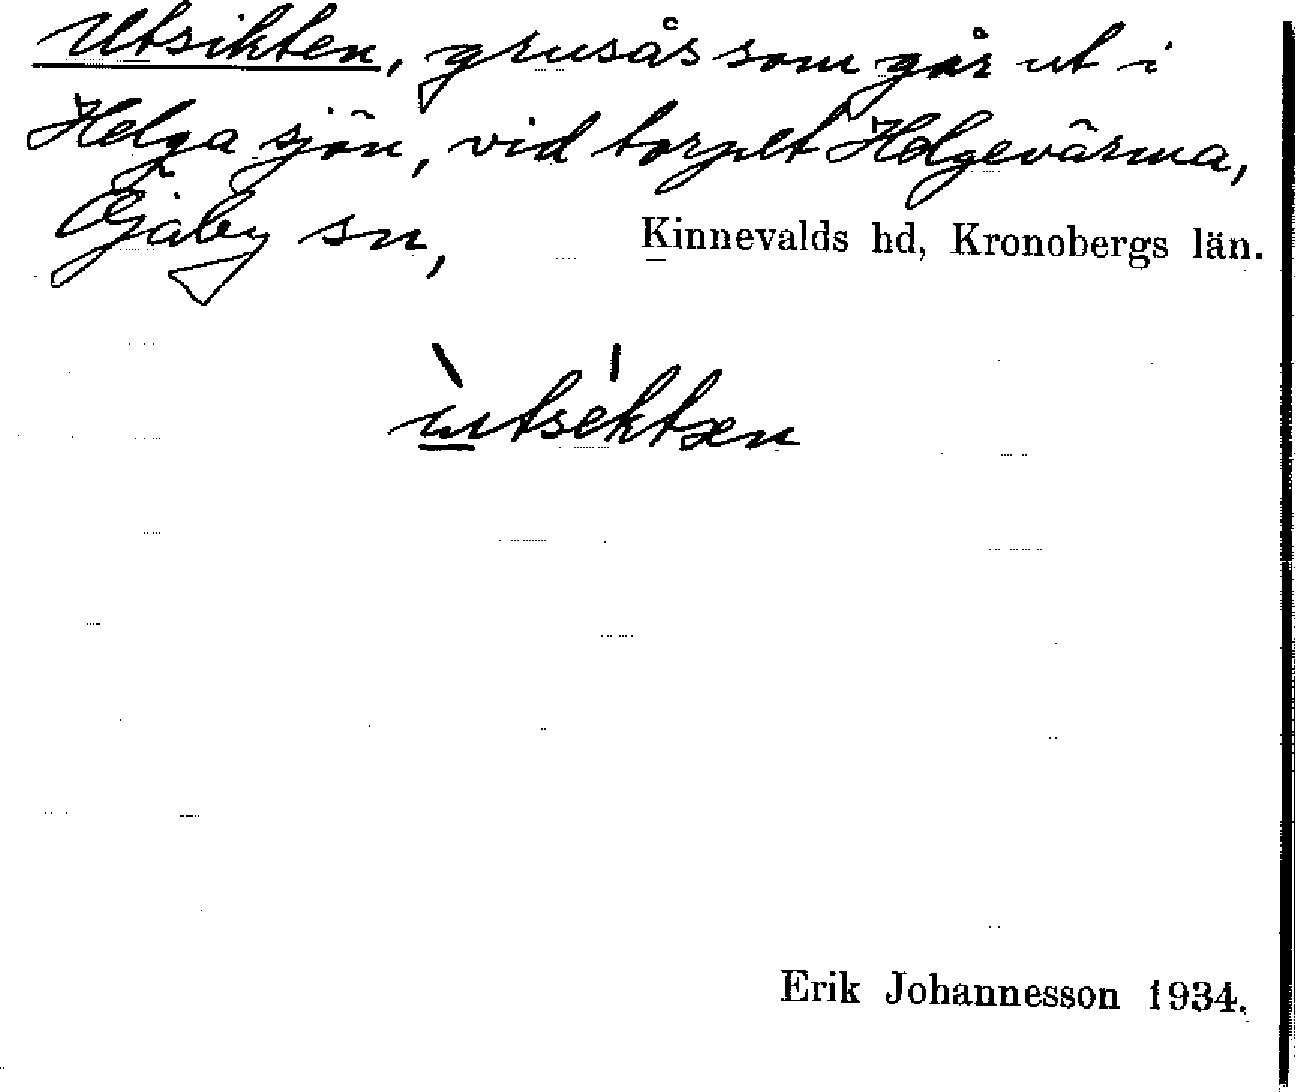 Utsikten, grusås som går ut i
Helga sjön, vid torpet Helgevärma,
Öjaby sn, Kinnevalds hd, Kronobergs län.
ùtséktæn
Erik Johannesson 1934.